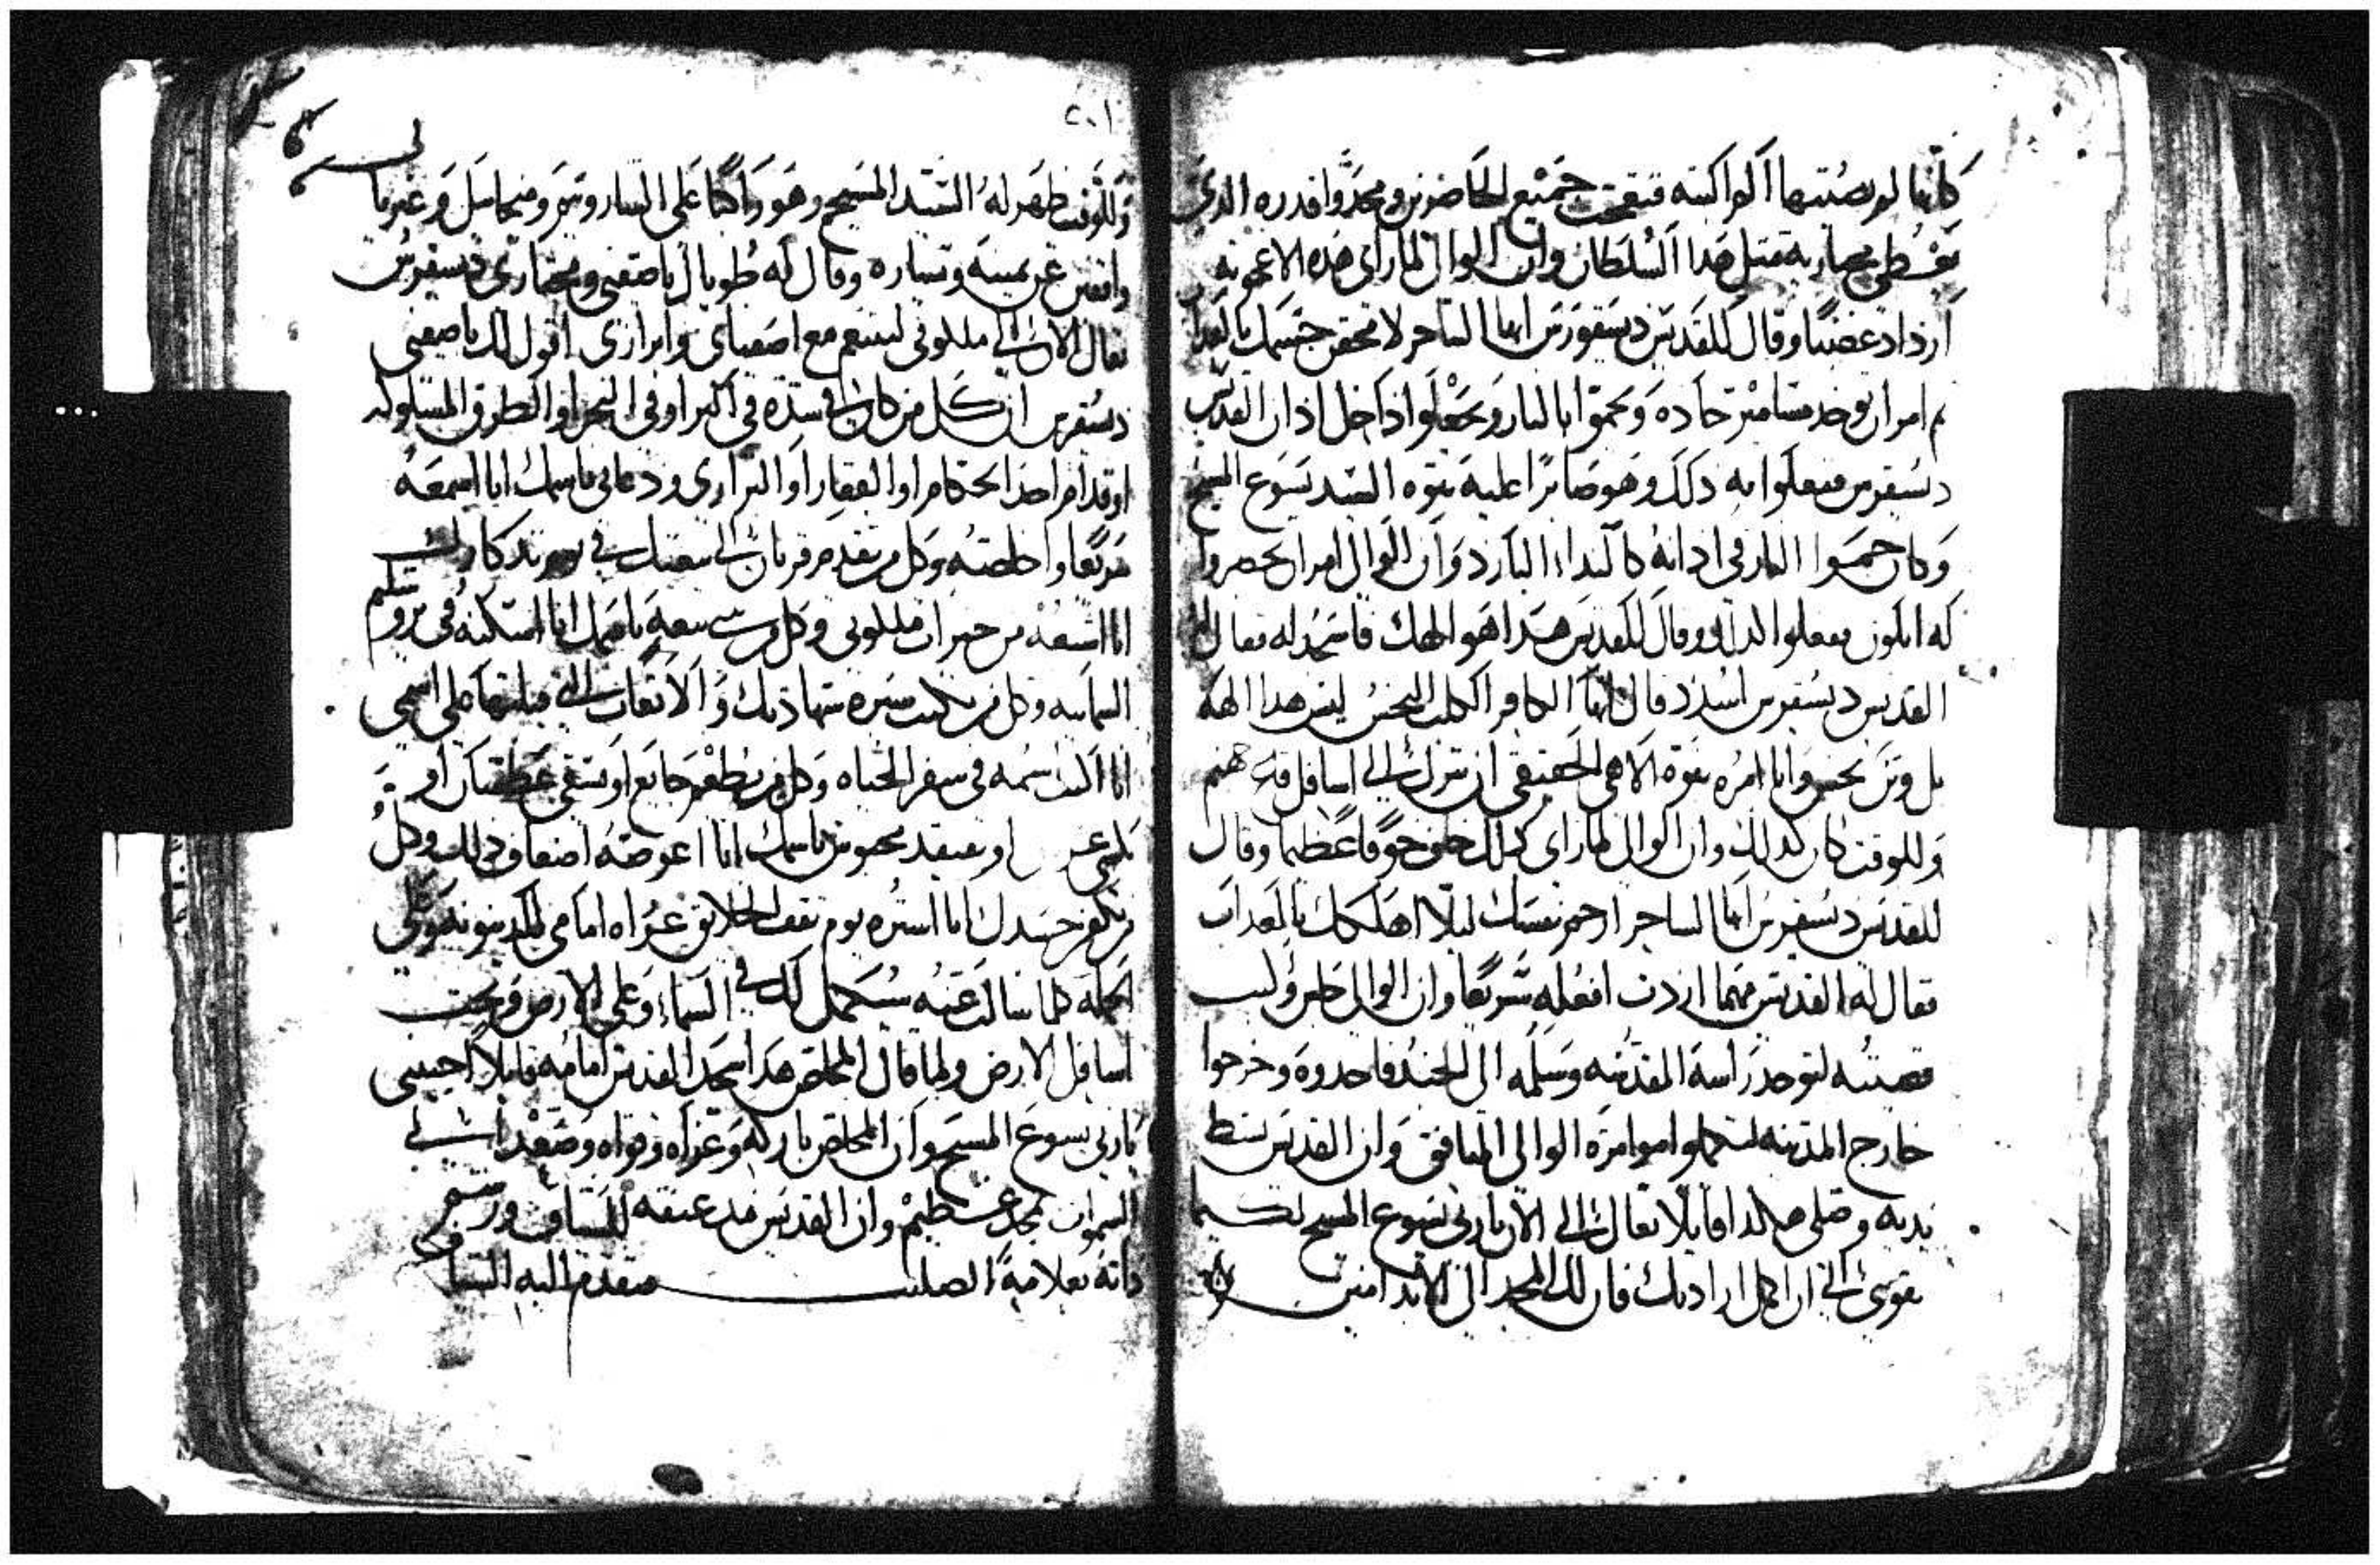 كانها لم يصبتها الواكته فتعجب جميع الحاضرين ومجدوا قدره الدي
يعطي مختاريه متل هدا السلطان وان الوالي لما راي هده الاعجوبه
ازداد غضبا وقال للقديس ديسقورس ايها الساحر لاحقن جسمك بالعداب
تم امر ان يوخد مسامير حاده ويحموا بالنار ويجعلوا داخل ادان القديس
ديسقرس ففعلوا به دلك وهو صابرا عليه بقوه السيد يسوع المسيح
وكان حمو النار في ادانه كالنداء البارد وان الوالي امر ان يحضروا
له ابلون ففعلوا كدلك وقال للقديس هدا هو الهك فاسجد له فقال
القديس ديسقرس اسد قال ايها الكافر الكلب النجس ليس هدا اله
بل وتن نجس وانا امره بقوة الاهي الحقيقي ان تنزل الي اسافل جهنم
وللوقت كان كدلك وان الوالي لما راي دلك خاف خوفا عظيما وقال
للقديس ديسقرس ايها الساحر ارحم نفسك ليلا اهلكك بالعداب
فقال له القديس مهما اردت افعله سريعا وان الوالي جلس وكتب
قضيته لتوخد راسه المقدسه وسلمه الي الجند فاخدوه وخرجوا
خارج المدينه ليكملوا اموامره الوالي المنافق وان القديس بسط
يديه وصلي هكدا قايلا تعال الي الان ياربي يسوع المسيح لكيما
يقويني الي ان اكمل ارادتك فان لك المجد الي الابد امين
٢٠١
وللوقت ظهر له السيد المسيح وهو راكبا علي الساروبيم وميخاييل وغبريال
واقفين عن يمينه ويساره وقال له طوباك ياصفيي ومختاري ديسقرس
تعال الان الي ملكوتي لتتنعم مع اصفياي وابراري اقول لك ياصفيي
ديسقرس ان كل من كان في شده في البر او في البحر او الطرق المسلوكه
او قدام احد الحكام او القفار او البراري ودعاني باسمك انا اسمعه
سريعا واخلصه وكل من يقدم قربان الي بيعتك في يوم تدكارك
انا اشبعه من خيرات ملكوتي وكل من يبني بيعه باسمك انا اسكنه في يروشليم
السماييه وكل من يكتب سيره شهادتك والاتعاب التي قبلتها علي اسمي
انا اكتب اسمه في سفر الحياه وكل من يطعم جايع او يسقي عطشان او
يكسي عريان او يفتقد محبوس باسمك انا اعوضه اضعاف دلك وكل
من يكفن جسدك انا استره يوم تقف الخلايق عراه امامي للدينونه وعلي
الجمله كلما سالت عنه سيكمل لك في السماء وعلي الارض وتحت
اسافل الارض ولما قال المخلص هدا سجد القديس امامه قايلا احببني
ياربي يسوع المسيح وان المخلص باركه وعزاه وقواه وصعد الي
السموات بمجد عظيم وان القديس مد عنقه للسياف ورشم
داته بعلامة الصليب فتقدم اليه السياف